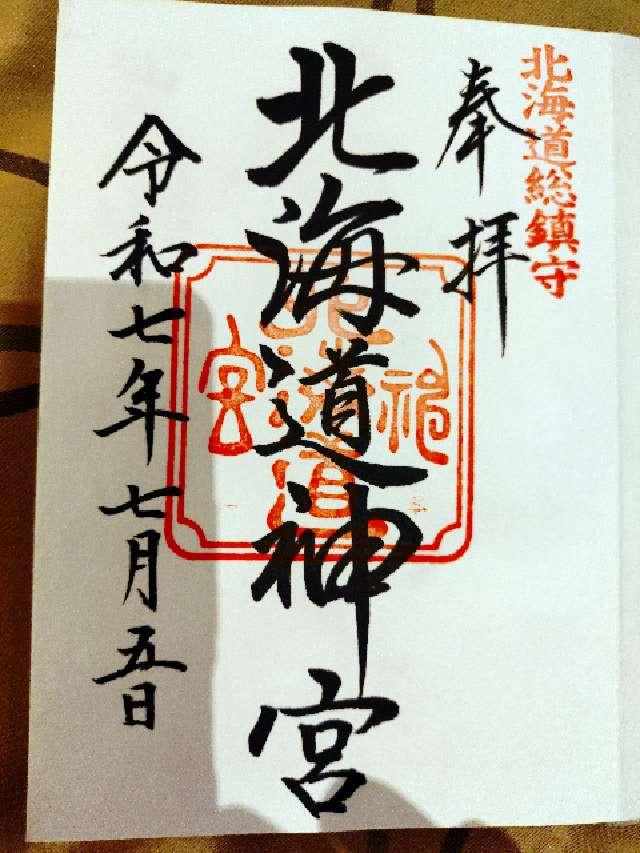 北海道総鎮守
奉拝
北海道神宮
令和七年七月五日